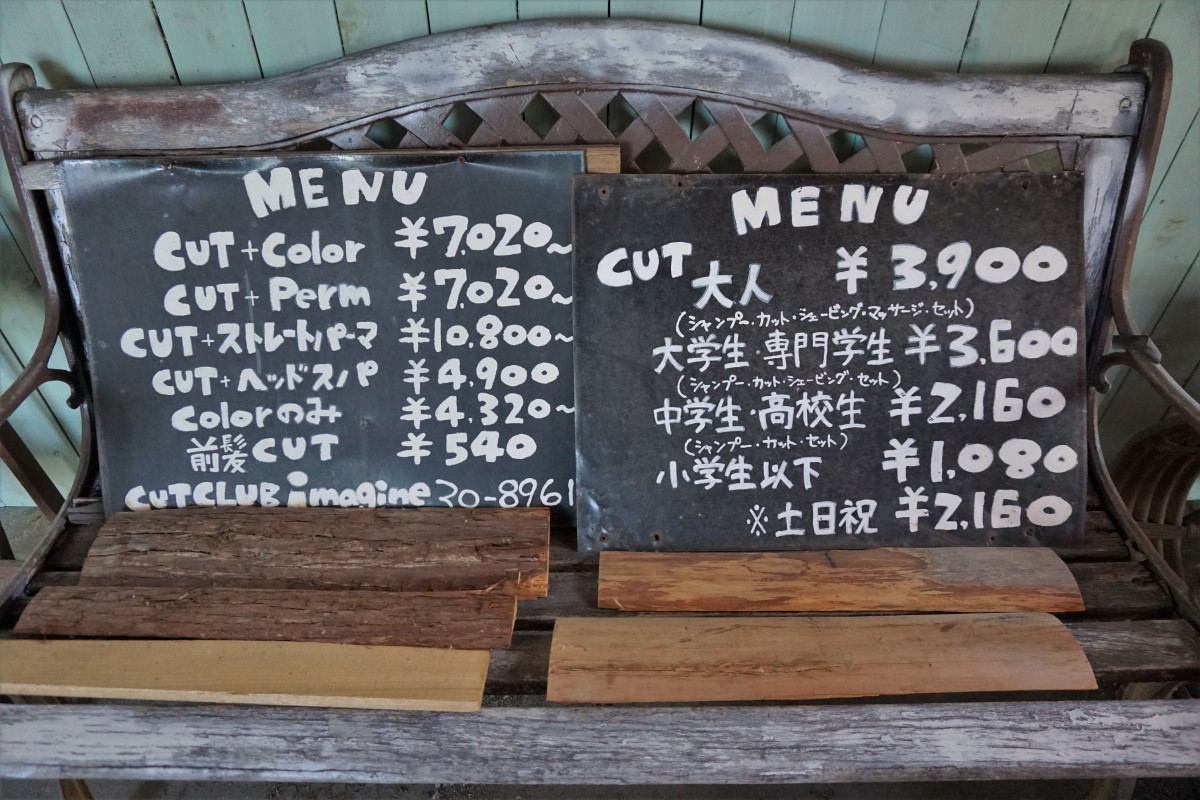 MENU
CUT+Color ¥7,020~
CUT+Perm ¥7,020~
CUT+ストレートパーマ ¥10,800~
CUT+ヘッドスパ ¥4,900
Colorのみ ¥4,320~
前髪CUT ¥540
CUTCLUB imagine 30-8961
MENU
CUT 大人 ¥3,900
(シャンプー・カット・シェービング・マッサージ・セット)
大学生・専門学生 ¥3,600
(シャンプー・カット・シェービング・セット)
中学生・高校生 ¥2,160
(シャンプー・カット・セット)
小学生以下 ¥1,080
※土日祝 ¥2,160